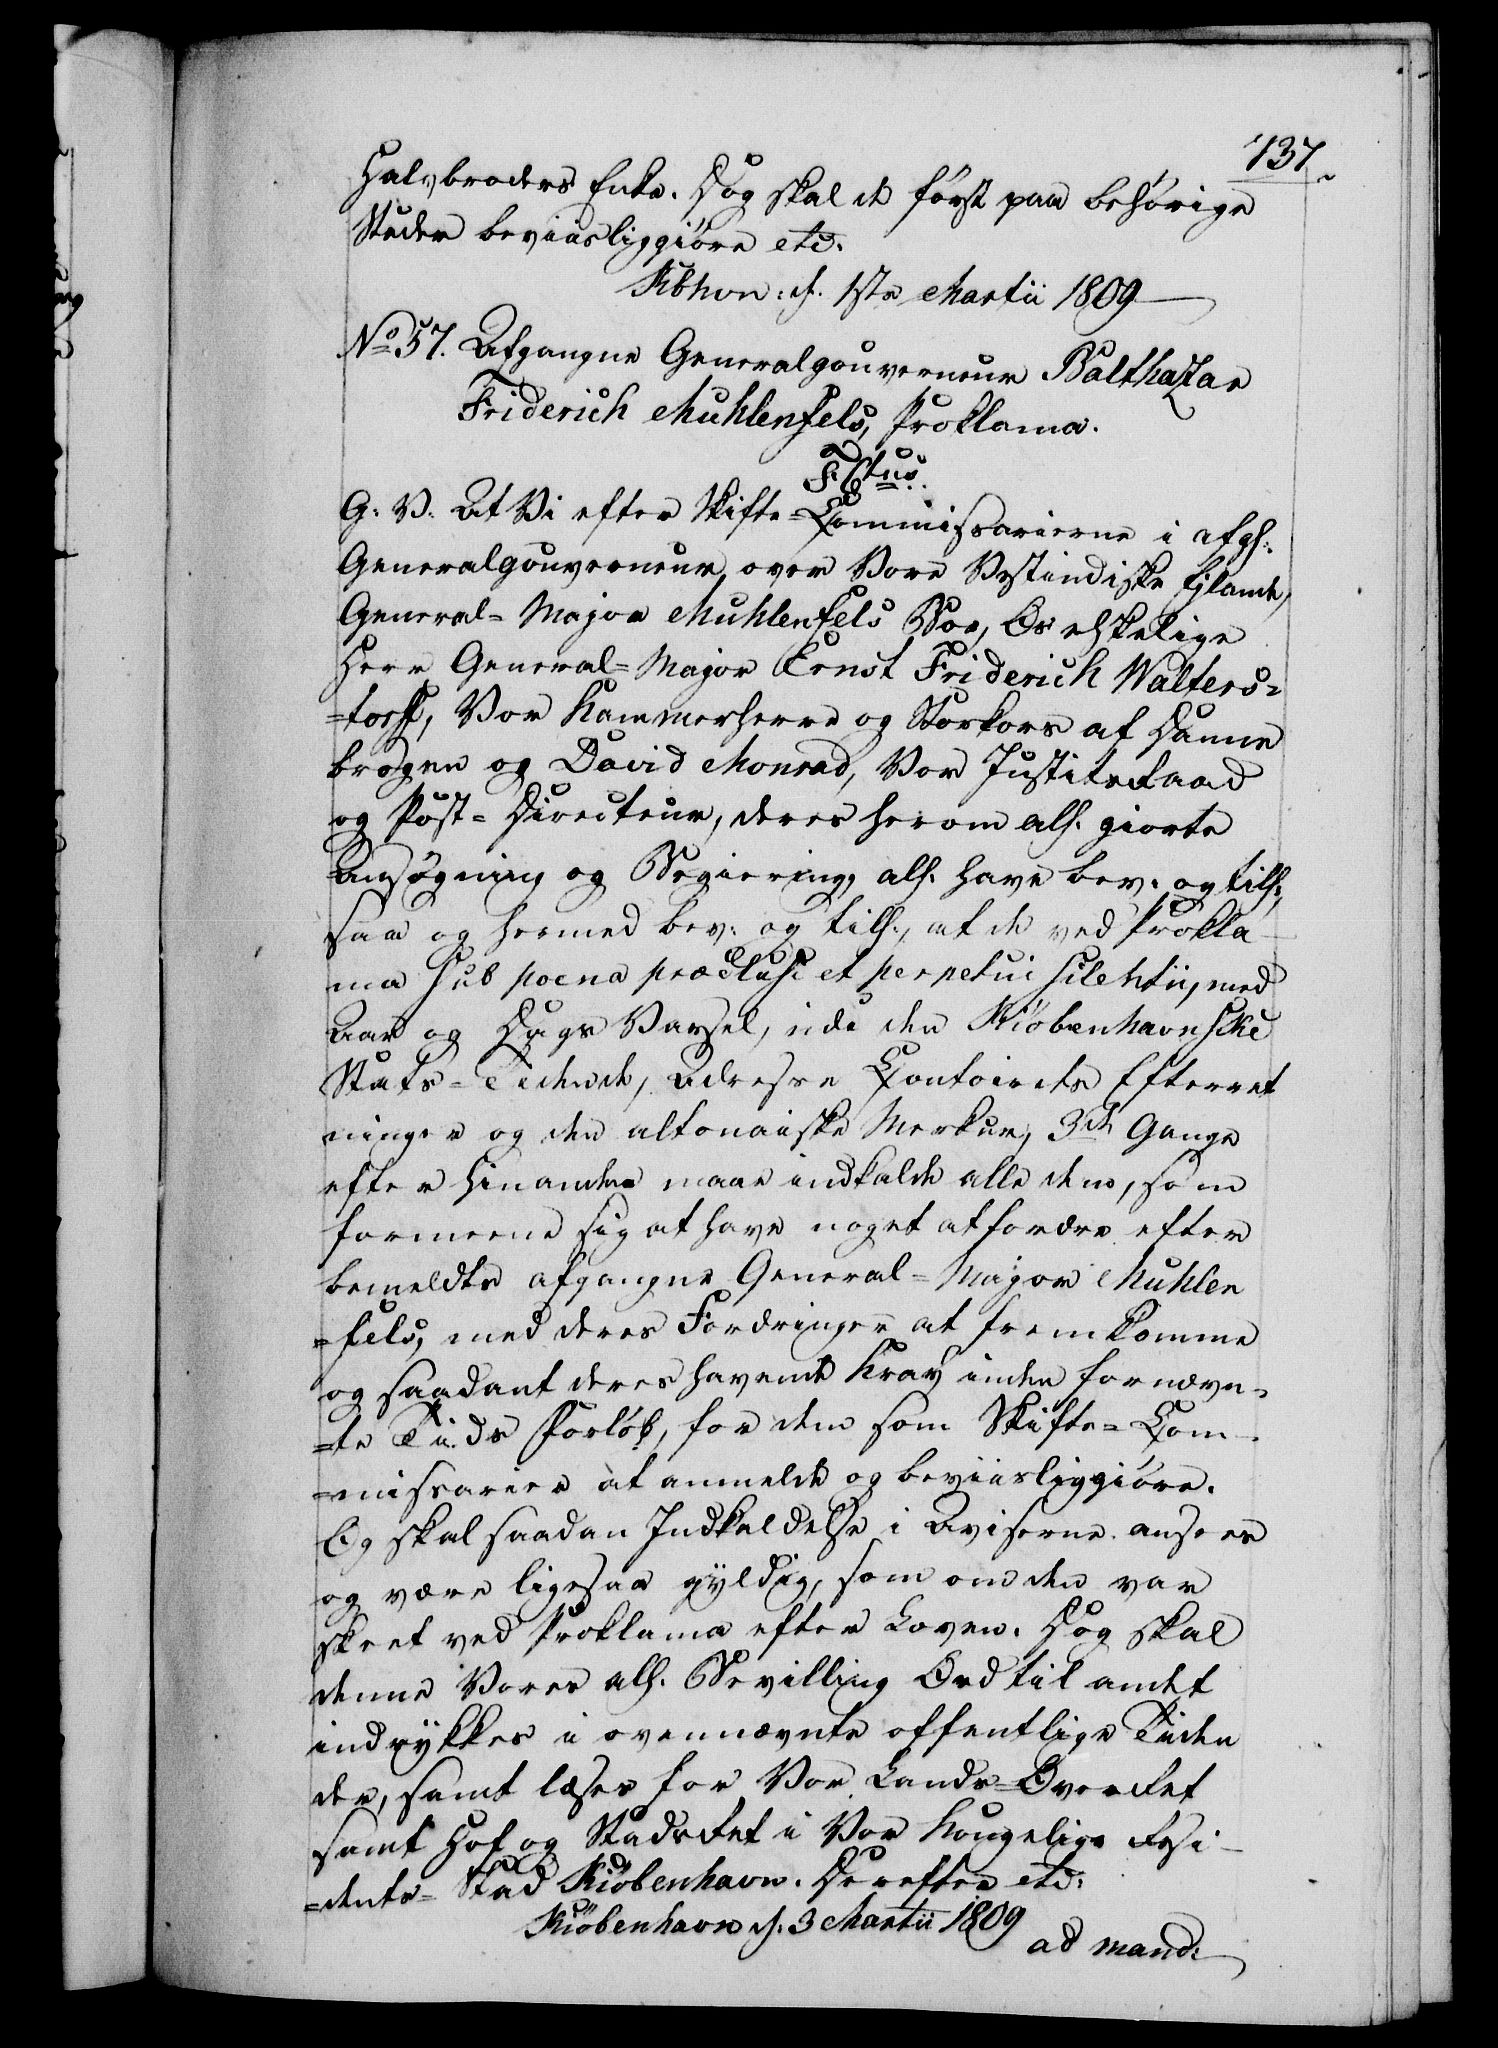 737
Halvbroders Enke. Dog skal de först paa behörige
Steder beviisliggiöre etc.
Kbhvn: d. 1ste Martii 1809
No 57. Afgangne Generalgouverneur Balthazar
Friderich Muhlenfels, Proklama.
F. 6tus.
G. V. At Vi efter Skifte-Commissarierne i afg:
Generalgouverneur over Vore Vestindiske Eylande,
General-Major Muhlenfels Boe, Os elskelige
Herr General-Major Ernst Friderich Walters-
=torff, Vor Kammerherre og Storkors af Danne
brogen og David Monrad, Vor Justitsraad
og Post-Directeur, deres herom all. giorte
Ansøgning og Begiering, all. have bev. og till.,
saa og hermed bev. og till., at de ved Prokla-
ma sub poena præclusi et perpetui silentii, med
Aar og Dags Varsel, i de den Kiöbenhavnske
Stats-Tidende, Adresse Contoirets Efterret
ninger og den altonaiske Merkur, 3de Gange
efter hinanden maae indkalde alle dem, som
formeene sig at have noget at fordre efter
bemeldte afgangne General-Major Muhlen
=fels, med deres Fordringer at fremkomme
og saadant deres havende Krav inden fornævn-
=te Tiids Forlöb, for dem som Skifte-Com-
=missarier at anmelde og beviisliggiöre.
Og skal saadan Indkaldelse i Aviserne ansees
og være ligesaa gyldig, som om den var
skeet ved Proklama efter Loven. Dog skal
denne Vores all. Bevilling Ord til andet
indrykkes i ovennævnte offentlige Tiden
der, samt læses for Vor Lands-Overret
samt Hof og Stadsret i Vor Kongelige Resi-
=dents-Stad Kiöbenhavn. Derefter etc.
Kiöbenhavn d. 3 Martii 1809
ad mand: